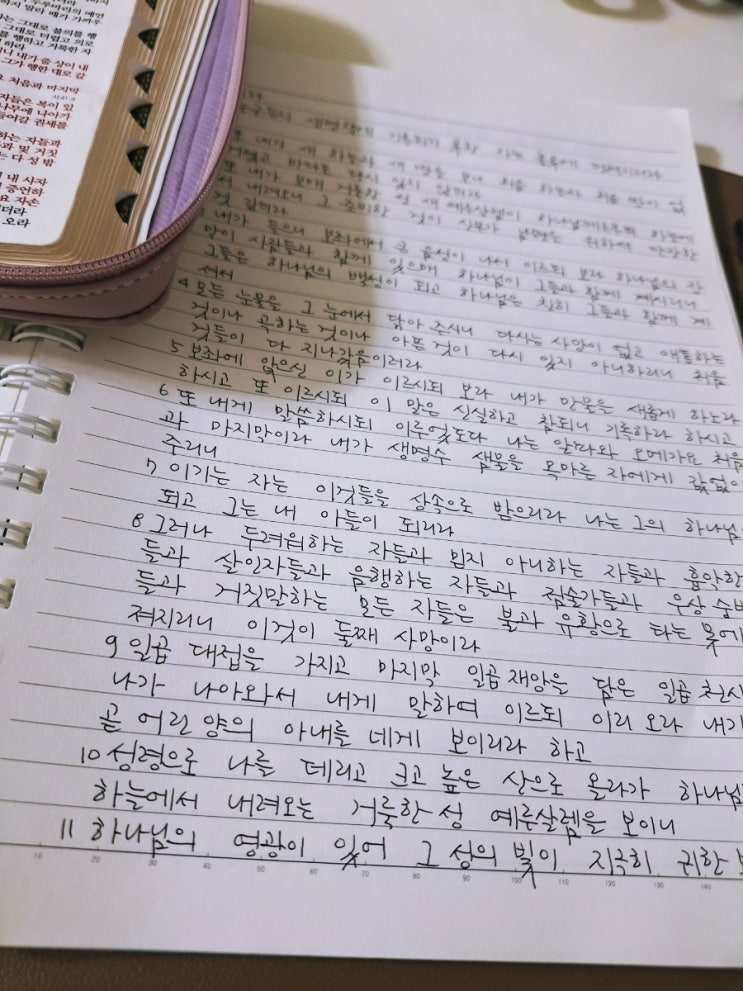 하지 말라 때가 가까우
는 그대로 불의를 행
그대로 더럽고 의로
행하고 거룩한 자
하라
내가 줄 상이 내
그가 행한 대로 갚
처음과 마지막
자들은 복이 있
나무에 나아가
들어갈 권세를
하는 자들과
과 및 거짓
는 다 성 밖
내 사자
증언하
자손
더라
오라
생명책에 기록되지 못한 자는 불못에 던져지리라
또 내가 새 하늘과 새 땅을 보니 처음 하늘과 처음 땅이 없
바다도 다시 있지 않더라
또 내가 보매 거룩한 성 새 예루살렘이 하나님께로부터 하늘에
서 내려오니 그 준비한 것이 신부가 남편을 위하여 단장한
것 같더라
내가 들으니 보좌에서 큰 음성이 나서 이르되 보라 하나님의 장
막이 사람들과 함께 있으매 하나님이 그들과 함께 계시리니
그들은 하나님의 백성이 되고 하나님은 친히 그들과 함께 계
셔서
4 모든 눈물을 그 눈에서 닦아 주시니 다시는 사망이 없고 애통하는
것이나 곡하는 것이나 아픈 것이 다시 있지 아니하리니 처음
것들이 다 지나갔음이러라
5 보좌에 앉으신 이가 이르시되 보라 내가 만물을 새롭게 하노라
하시고 또 이르시되 이 말은 신실하고 참되니 기록하라 하시고
6 또 내게 말씀하시되 이루었도다 나는 알파와 오메가요 처음
과 마지막이라 내가 생명수 샘물을 목마른 자에게 값없이
주리니
7 이기는 자는 이것들을 상속으로 받으리라 나는 그의 하나님
되고 그는 내 아들이 되리라
8 그러나 두려워하는 자들과 믿지 아니하는 자들과 흉악한
들과 살인자들과 음행하는 자들과 점술가들과 우상 숭배
들과 거짓말하는 모든 자들은 불과 유황으로 타는 못에
져지리니 이것이 둘째 사망이라
9 일곱 대접을 가지고 마지막 일곱 재앙을 담은 일곱 천사
나가 나아와서 내게 말하여 이르되 이리 오라 내가
곧 어린 양의 아내를 네게 보이리라 하고
10 성령으로 나를 데리고 크고 높은 산으로 올라가 하나님
하늘에서 내려오는 거룩한 성 예루살렘을 보이니
11 하나님의 영광이 있어 그 성의 빛이 지극히 귀한 보
10 20 30 40 50 60 70 80 90 100 110 120 130 140